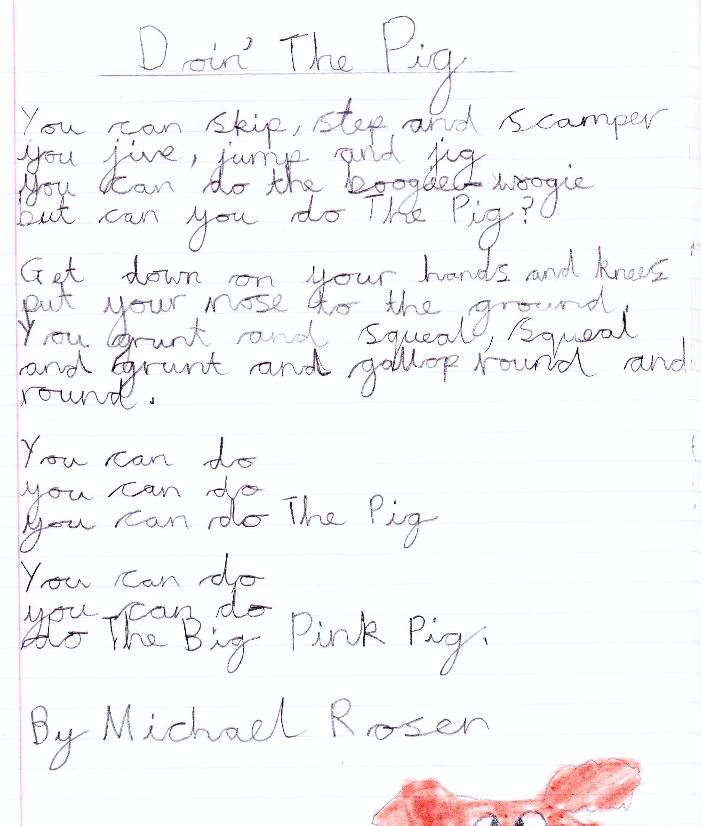 Doin' The Pig
You can skip, step and scamper
you jive, jump and jig
you can do the boogie-woogie
but can you do The Pig?
Get down on your hands and knees
put your nose to the ground,
You grunt and squeal, squeal
and grunt and gallop round and
round.
You can do
you can do
you can do The Pig
You can do
you can do
do The Big Pink Pig.
By Michael Rosen